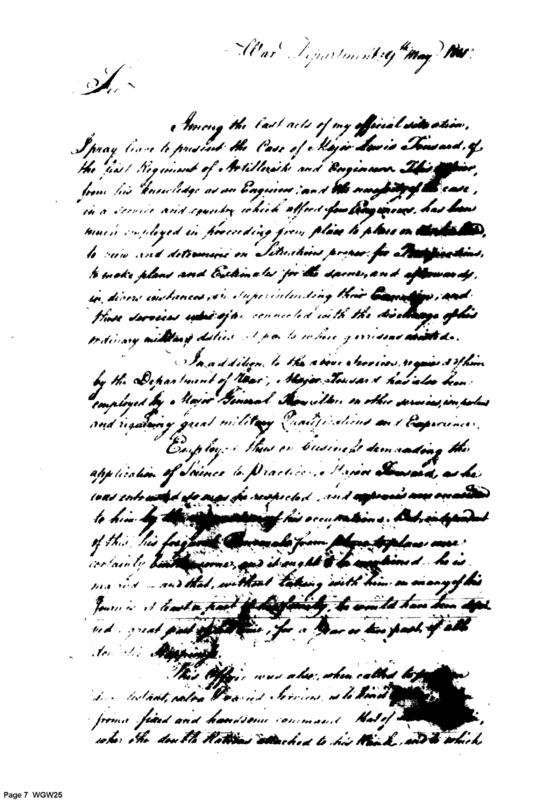 War Department 9th May 1801
Sir
Among the last acts of my official situation,
I pray leave to present the Case of Major Lewis Tousard, of
the first Regiment of Artillerists and Engineers. This officer,
from his knowledge as an Engineer, and the necessity of the case,
in a service and country which afford few Engineers, has been
much employed in proceeding from place to place on
to view and determine on Situations proper for Fortifications,
to make plans and Estimates for the same, and afterwards,
in divers instances, in superintending their Execution, and
these services were often connected with the discharge of his
ordinary military duties at posts where garrisons existed.
In addition to the above Services, required of him
by the Department of War, Major Tousard has also been
employed by Major General Hamilton on other services, important
and requiring great military Qualifications and Experience.
Employed thus on business demanding the
application of Science to Practice, Major Tousard, as he
was entrusted so was he respected, and expences were occasioned
to him by the of his occupations. But, independent
of this, his frequent removals from place to place were
certainly burthensome, and it ought to be mentioned he is
married and that, without taking with him on many of his
Journies at least a part of his family, he would have been depri
ved great part of the time, for a year or two past, of all
domestic Happiness.
This Officer was also, when called to perform
distant, extra and varied Services,
from a fixed and handsome command that of
where the double Rations attached to his Rank, and to which
Page 7 WGW25